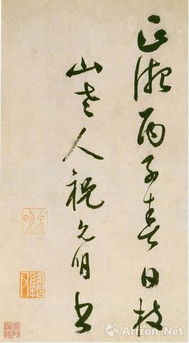 正德丙子春日枝
山老人祝允明書
Artron.Net